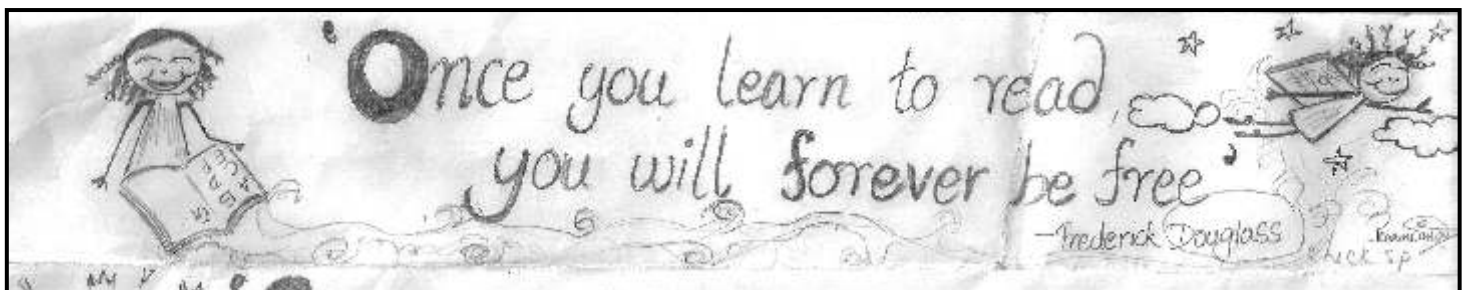 'Once you learn to read,
you will forever be free'
-Frederick Douglass